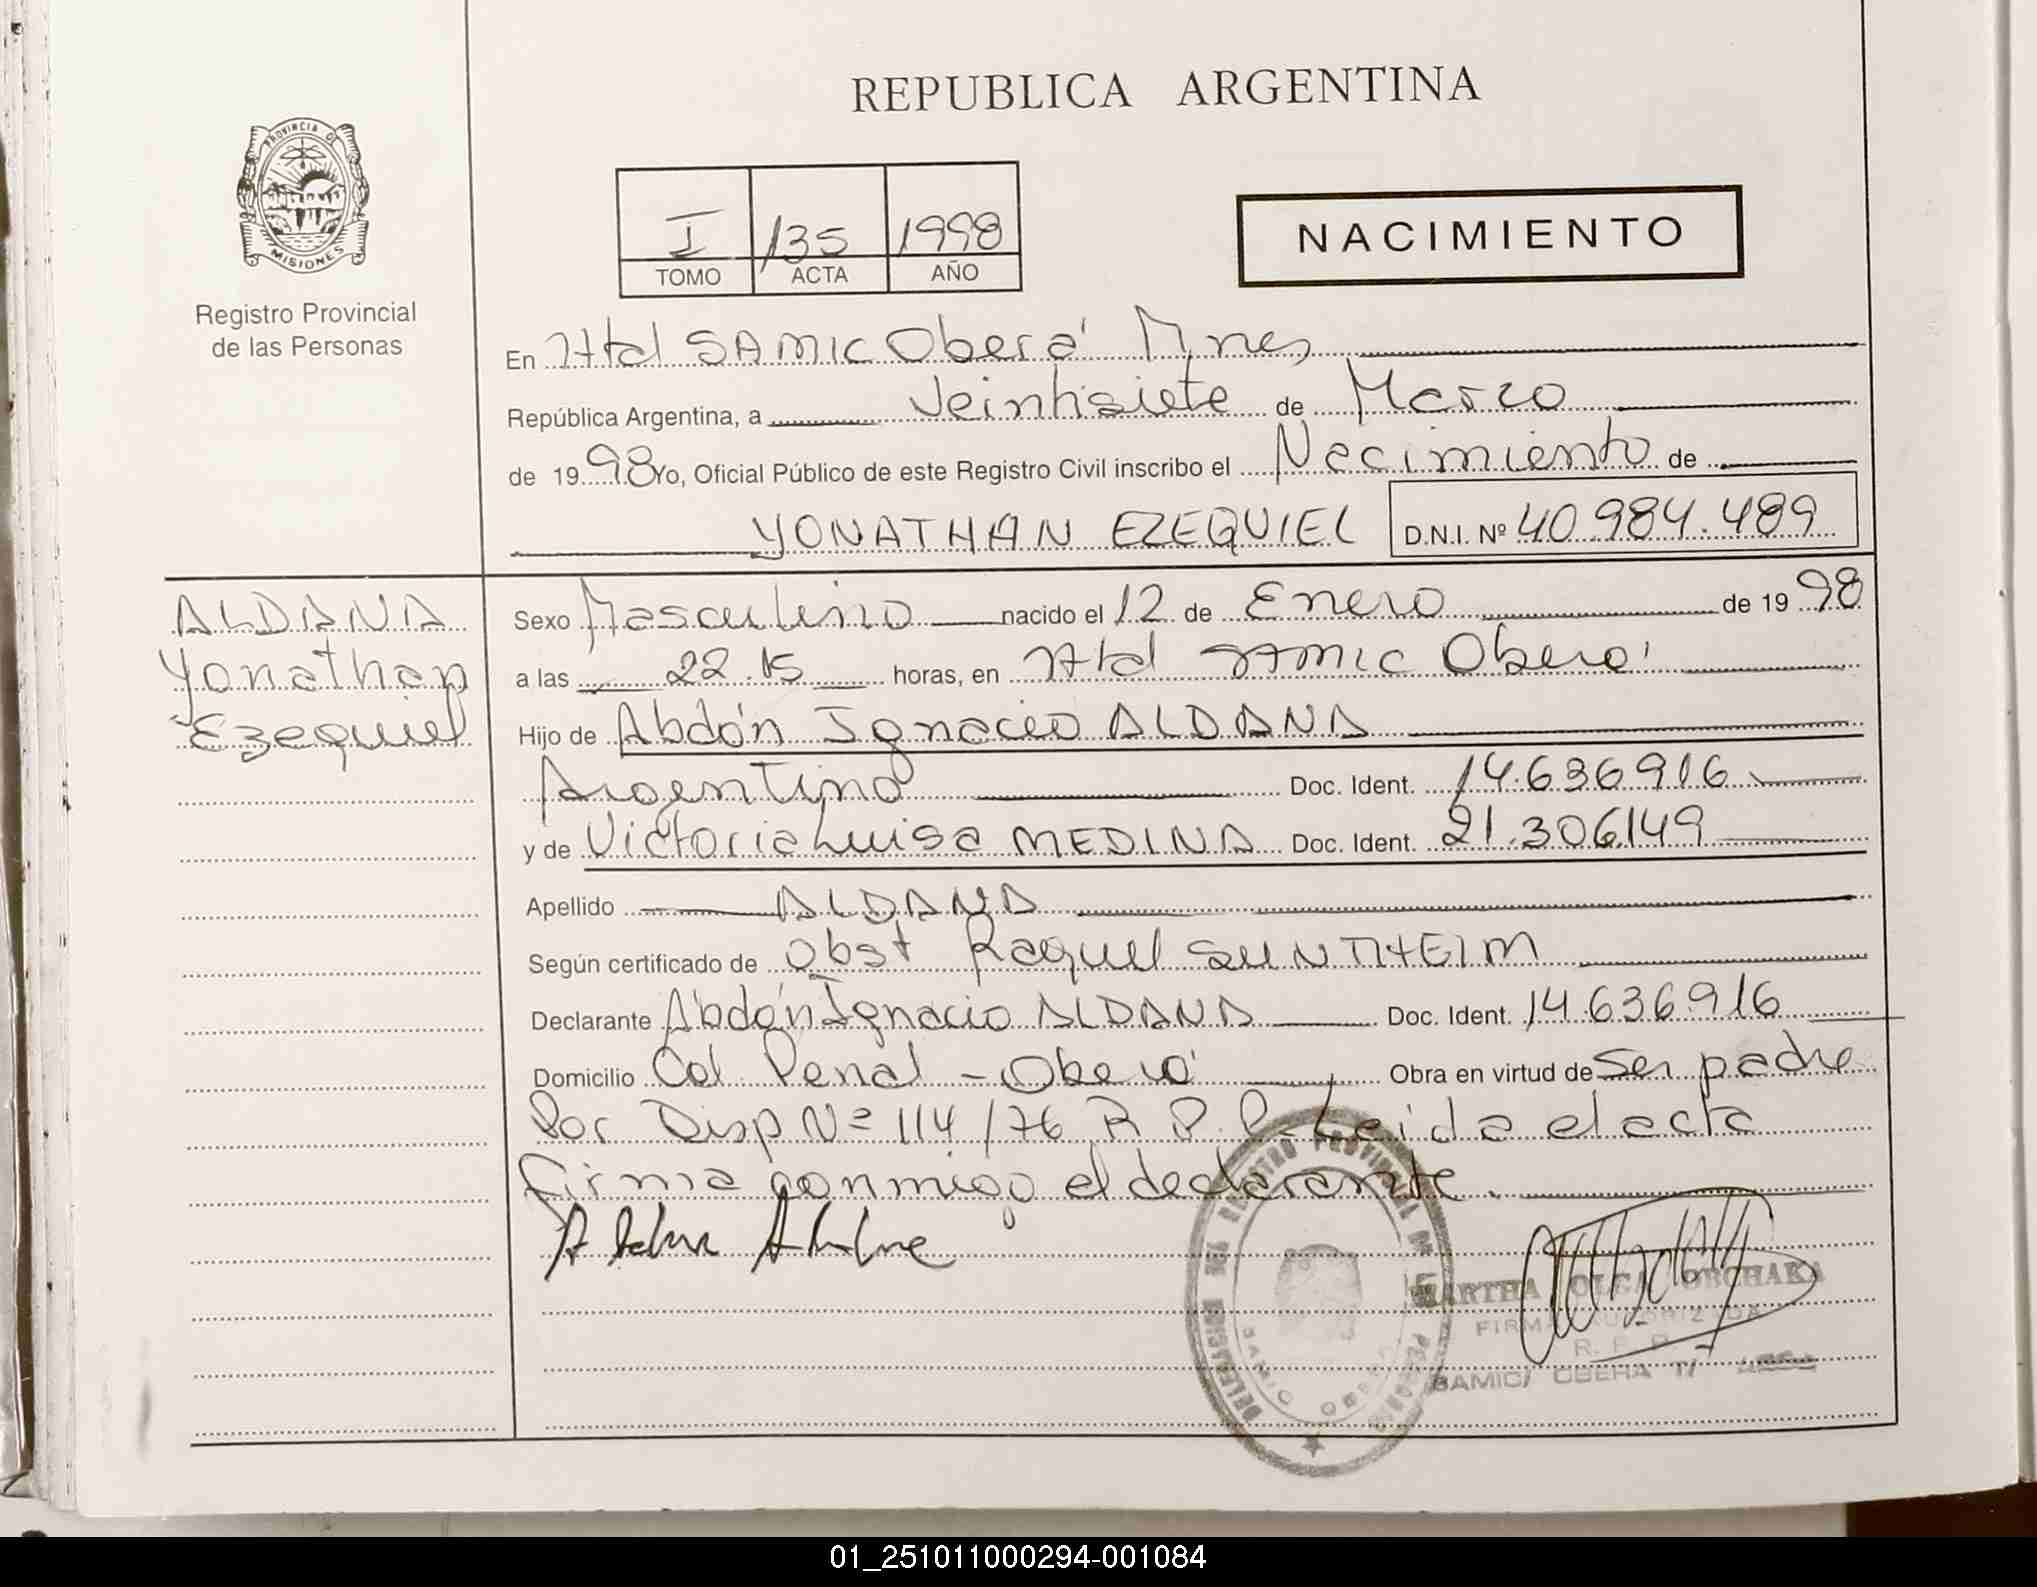 REPUBLICA ARGENTINA
PROVINCIA DE
MISIONES
Registro Provincial
de las Personas
I 135 1998
TOMO ACTA AÑO
NACIMIENTO
En Htal SAMIC Oberá Mnes
República Argentina, a Veintisiete de Marzo
de 1998 Yo, Oficial Público de este Registro Civil inscribo el Nacimiento de
YONATHAN EZEQUIEL D.N.I. Nº 40.984.489
ALDANA
Yonathan
Ezequiel
Sexo Masculino nacido el 12 de Enero de 1998
a las 22.15 horas, en Htal SAMIC Oberá
Hijo de Abdón Ignacio ALDANA
Argentino Doc. Ident. 14.636916
y de Victoria Luisa MEDINA Doc. Ident. 21.306149
Apellido ALDANA
Según certificado de Obst Raquel SUNTHEIM
Declarante Abdón Ignacio ALDANA Doc. Ident. 14.636916
Domicilio Col Penal - Oberá Obra en virtud de ser padre
Por Disp Nº 114/76 R P. P. Leida el acta
firma conmigo el declarante.
MARTHA OLGA
FIRMA AUTORIZADA
R. P. P.
SAMIC/ OBERA
01_251011000294-001084